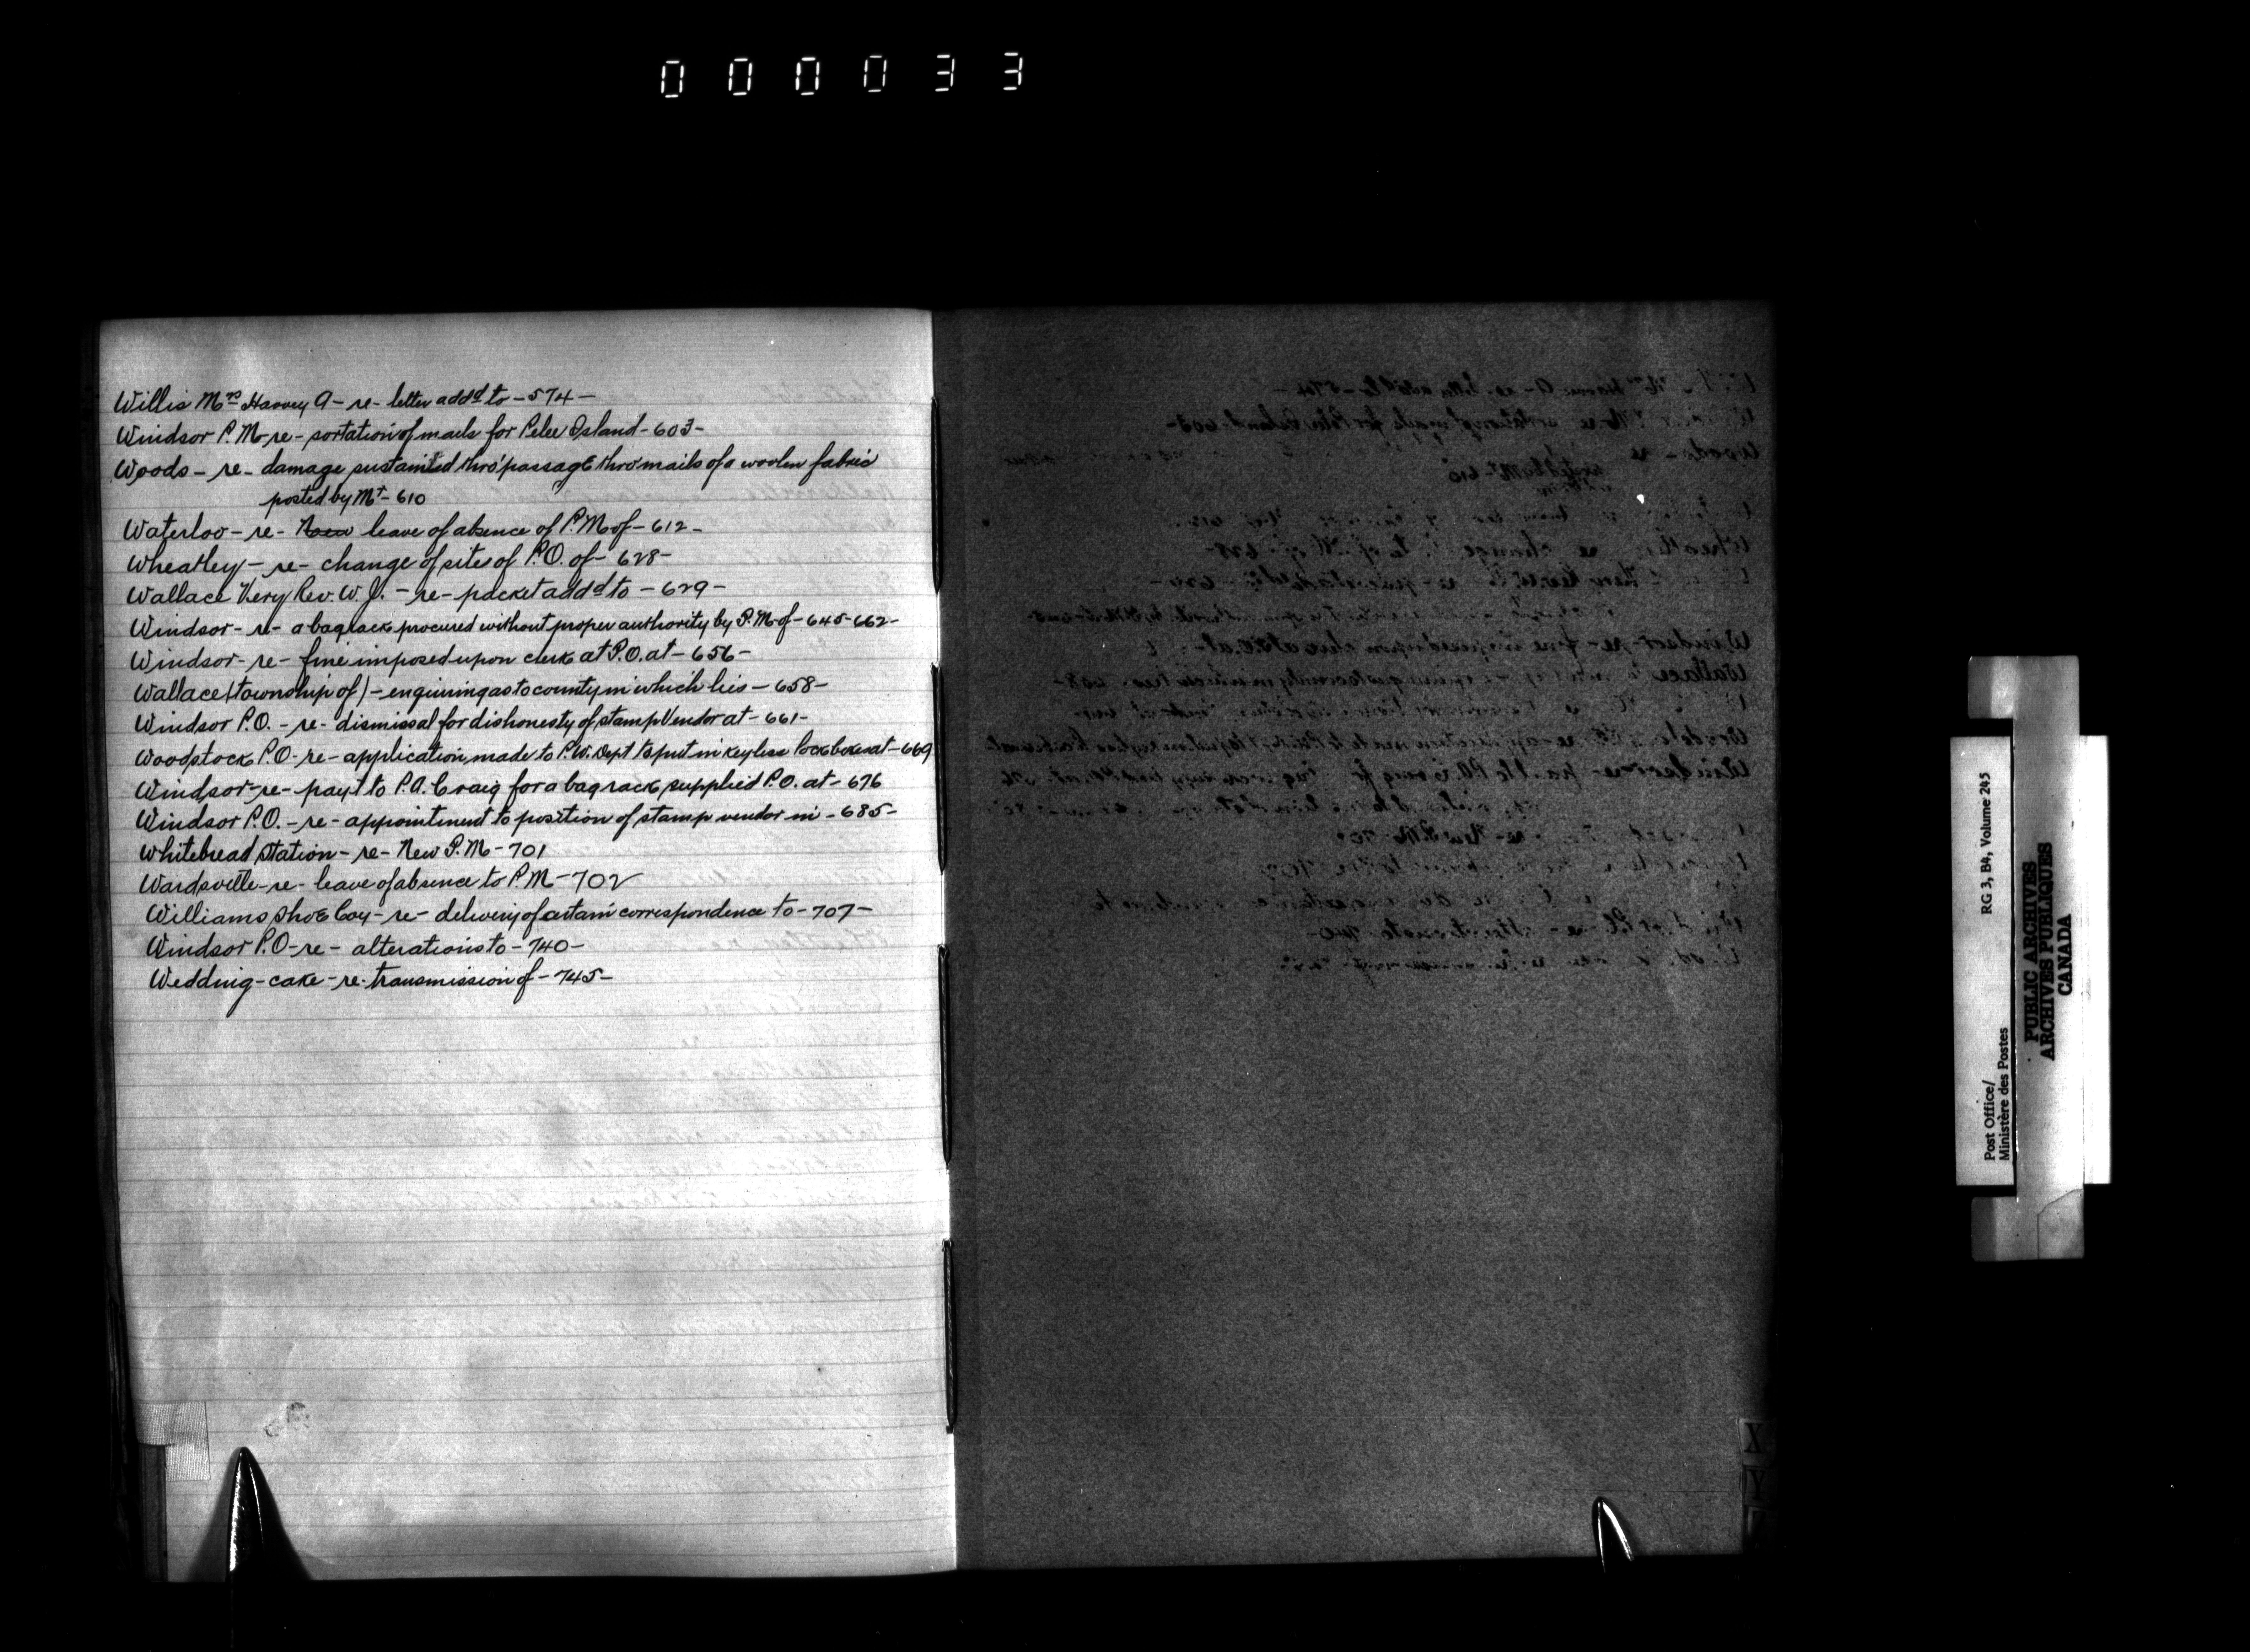 000033
Willis Mrs Harvey A - re - letter addd to - 574 -
Windsor P.M. - re - sortation of mails for Pelee Island - 603 -
Woods - re - damage sustained thro' passage thro' mails of a woolen fabric
posted by Mr - 610
Waterloo - re - New leave of absence of P.M of - 612 -
Wheatley - re - change of sites of P.O. of - 628 -
Wallace Very Rev. W. J. - re - packet addd to - 629 -
Windsor - re - a bag rack procured without proper authority by P.M of - 645 - 662 -
Windsor - re - fine imposed upon clerk at P.O. at - 656 -
Wallace (township of) - enquiring as to county in which lies - 658 -
Windsor P.O. - re - dismissal for dishonesty of stamp Vendor at - 661 -
Woodstock P.O - re - application made to P.W. Dept to put in keyless lock boxes at - 669
Windsor - re - payt to P.A. Craig for a bag rack supplied P.O. at - 676
Windsor P.O. - re - appointment to position of stamp vendor in - 685 -
Whitebread Station - re - New P.M - 701
Wardsville - re - leave of absence to P.M - 702
Williams Shoe Coy - re - delivery of certain correspondence to - 707 -
Windsor P.O - re - alterations to - 740 -
Wedding-cake - re - transmission of - 745 -
X
Y
Z
Post Office/
Ministère des Postes
RG 3, B4, Volume 245
PUBLIC ARCHIVES
ARCHIVES PUBLIQUES
CANADA